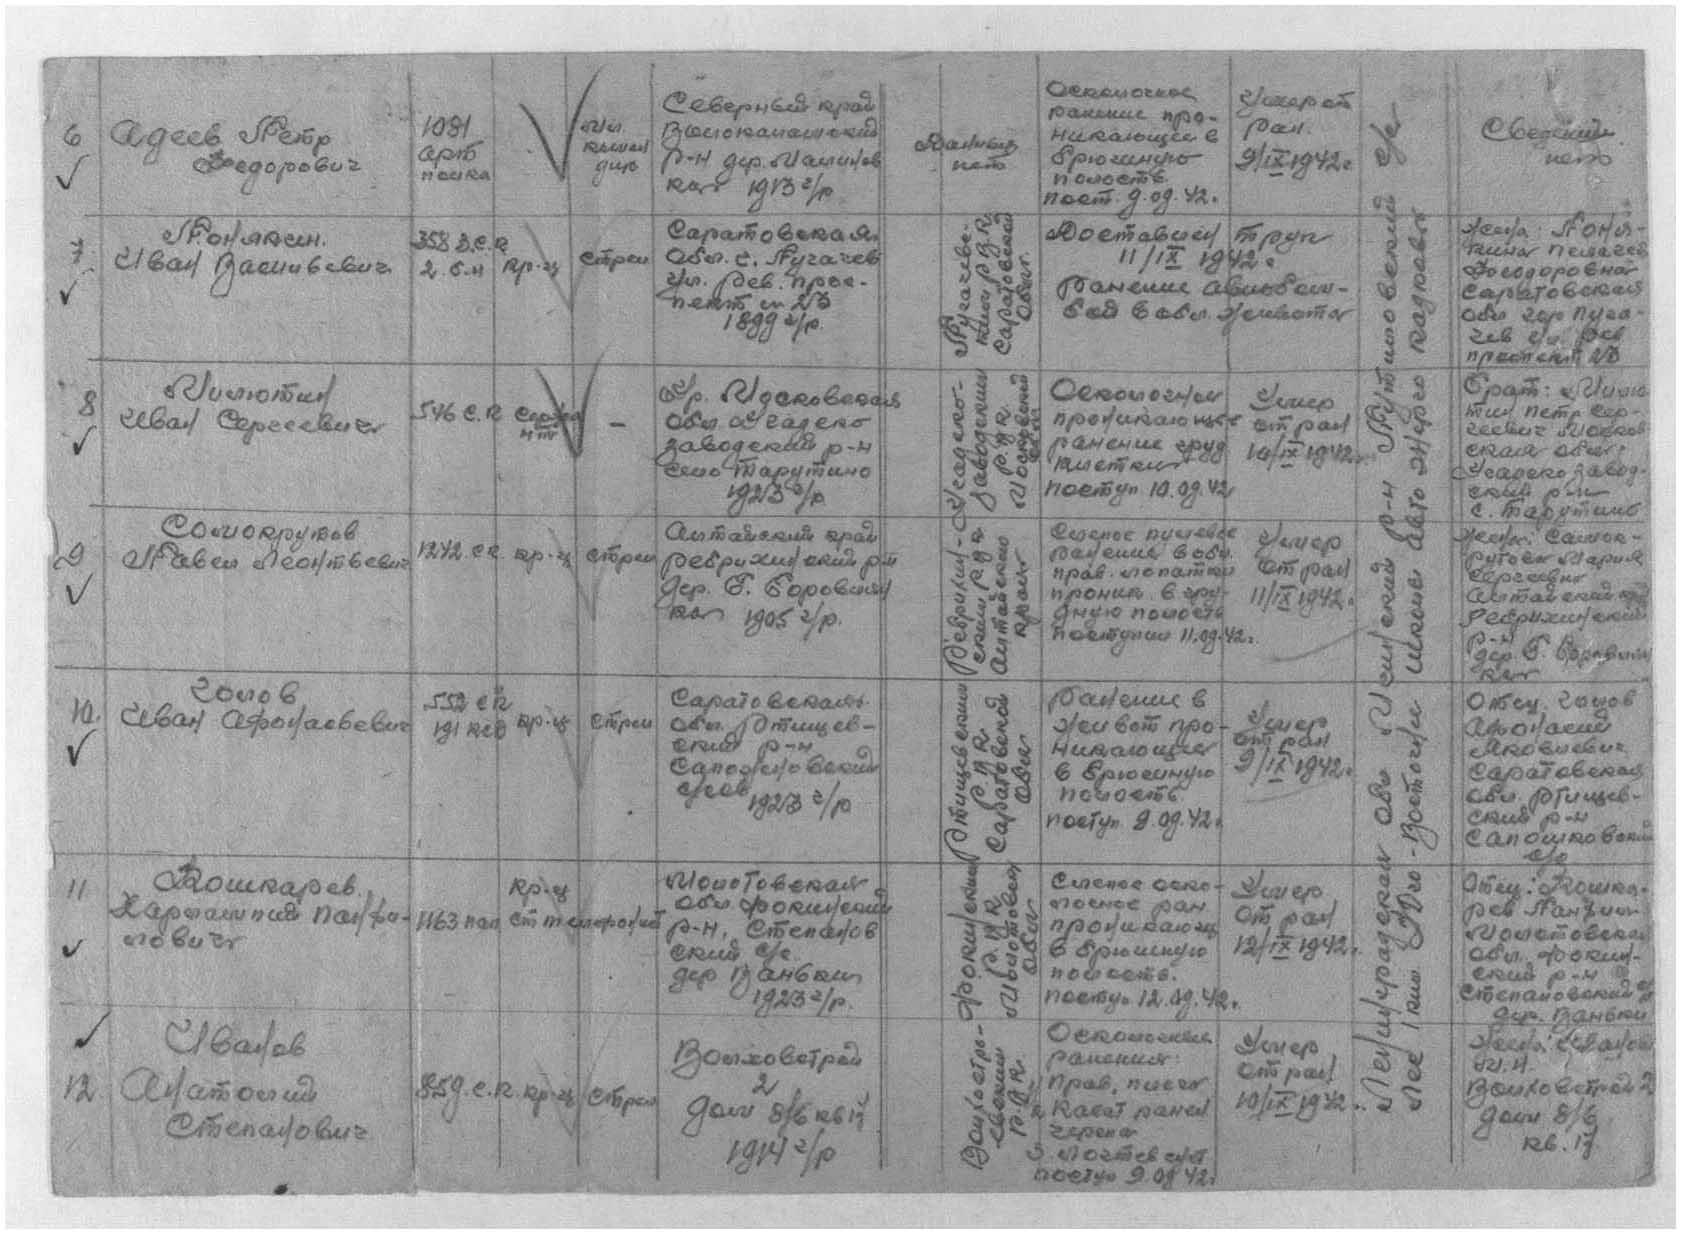 6
Адеев Петр
Федорович
1081
арт
полка
Мл.
коман
дир
Северный край
Волоколамский
р-н дер. Малинов
ка 1913 г/р
Данных
нет
Осколочное
ранение про-
никающее в
брюшную
полость
пост. 9.09.42г.
Умер от
ран.
9/IX 1942г.
Сведений
нет
7
Понякин
Иван Васильевич
358 З.С.П
2. б-н
кр-ц
стрел
Саратовская
обл. г. Пугачев
ул. Рев. прос-
пект
1899 г/р.
Пугачевс-
ким Р.В.К.
Саратовской
обл.
Доставлен труп
11/IX 1942г.
Ранение авиобом-
бой в обл. живота
Жена: Поня-
кина Пелагея
Феодоровна
Саратовская
обл гор Пуга-
чев ул. Рев
проспект
8
Милютин
Иван Сергеевич
546 С.П
–
Ур. Московская
обл. Угадско
заводский р-н
село Тарутино
1923 г/р
Угадско-
заводский
Р.В.К.
Московской
обл
Осколочное
проникающее
ранение груд
клетки
поступ. 10.09.42
Умер
от ран
10/IX 1942г.
Брат: Милю-
тин Петр Сер-
геевич Москов
ская обл.
Угадско завод-
ский р-н
с. Тарутино
9
Самокрутов
Павел Леонтьевич
1242 с.п.
кр-ц
стрел
Алтайский край
Ребрихинский р-н
дер. Г. Боровлян
ка 1905 г/р.
Ребрихин-
ским РВК
Алтайского
края
Слепое пулевое
ранение в обл.
прав. лопатки
проник. в гру-
дную полость
поступил 11.09.42г.
Умер
от ран
11/IX 1942г.
Жена: Самок-
рутова Мария
Сергеевна
Алтайский кр
Ребрихинский
р-н
дер. Г. Боровлян
ка
10.
Голов
Иван Афонасьевич
552 СП
кр-ц
стрел
Саратовская
обл. Ртищев-
ский р-н
Сапожковский
с/сов
1923 г/р
Ртищевский
Р.В.К
Саратовской
обл
Ранение в
живот про-
никающее
в брюшную
полость
поступ. 9.09.42г.
Умер
от ран
9/IX 1942г.
Отец. Голов
Афонасий
Яковлевич
Саратовская
обл. Ртищев-
ский р-н
Сапошковский
с/с
11
Кошкарев
Харлампий Панфи-
лович
1163 пап
кр-ц
ст телефонист
Молотовская
обл. Фокинский
р-н, Степанов
ский с/с.
дер Ваньки
1923 г/р.
Фокинский
Р.В.К
Молотовск
обл
Слепое оско-
лочное ран
проникающ
в брюшную
полость.
поступ. 12.09.42г.
Умер
от ран
12/IX 1942г.
Отец: Кошка-
рев Панфил
Молотовская
обл. Фокин-
ский р-н
Степановский с/с
дер. Ваньки
12
Иванов
Анатолий
Степанович
859. с.п.
кр-ц
стрел
Волховстрой
2
дом 8/6 кв 17
1914 г/р
Волхостро-
евский
Р.В.К.
Осколочные
ранения:
прав. плеча
2. касат ранен
черепа
поступ 9.09.42г.
Умер
от ран
10/IX 1942г.
Жена: Иванова
М.Н.
Волховстрой 2
дом 8/6
кв. 17
Ленинградская обл Мгинский р-н Путиловский с/с
Лес 1 км Юго-Восточнее